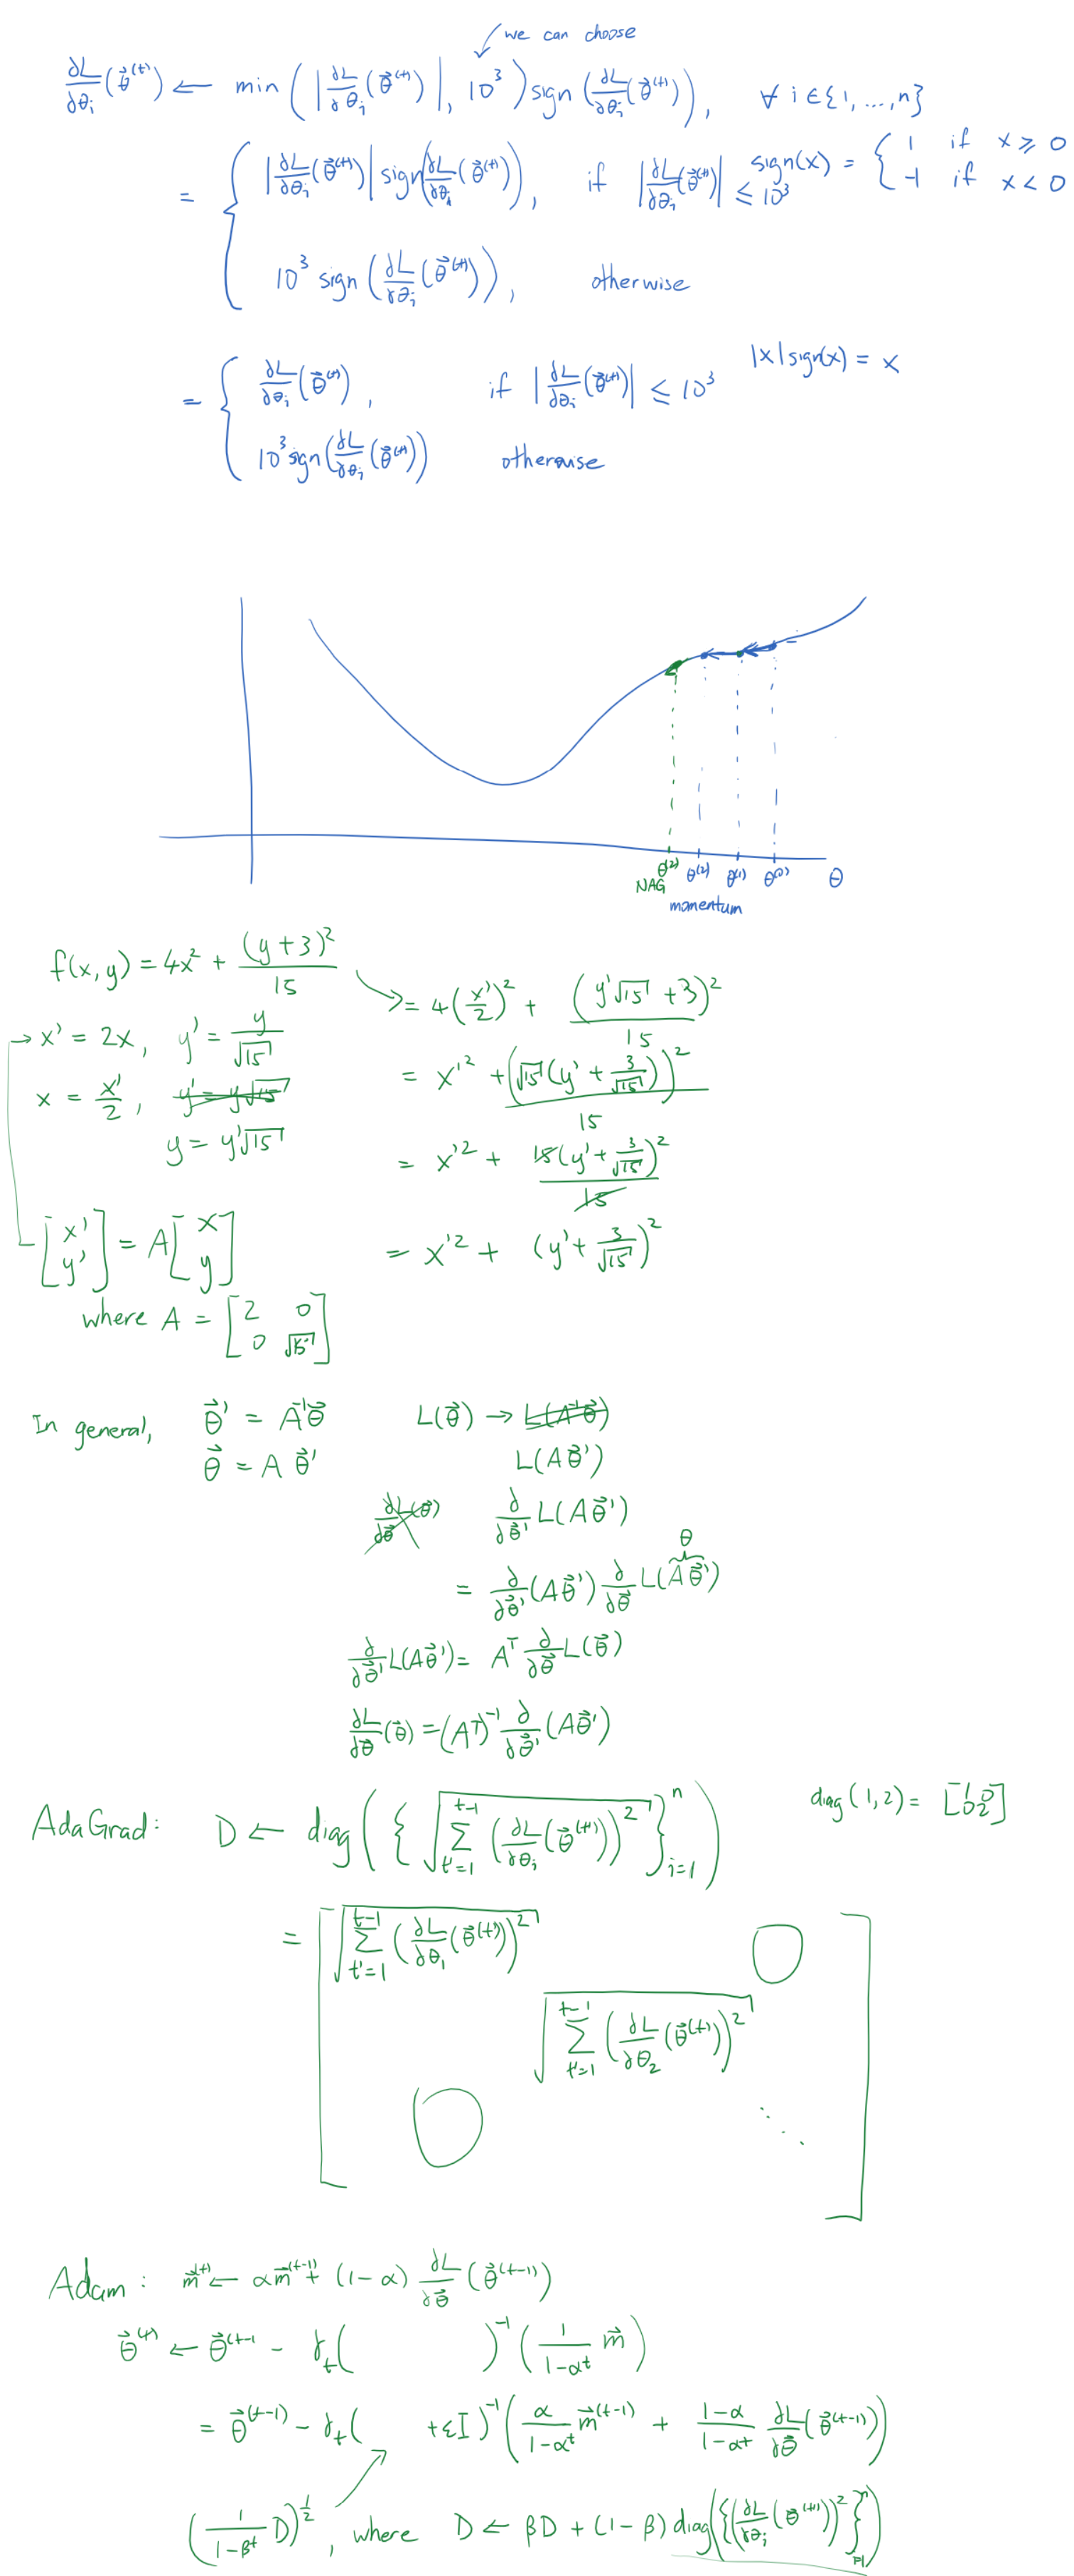 we can choose
∂L/∂θᵢ(θ⃗⁽ᵗ⁾) ← min(|∂L/∂θᵢ(θ⃗⁽ᵗ⁾)|, 10³) sign(∂L/∂θᵢ(θ⃗⁽ᵗ⁾)), ∀ i ∈ {1, ..., n}
= { |∂L/∂θᵢ(θ⃗⁽ᵗ⁾)| sign(∂L/∂θᵢ(θ⃗⁽ᵗ⁾)), if |∂L/∂θᵢ(θ⃗⁽ᵗ⁾)| ≤ 10³
sign(x) = { 1 if x ≥ 0
-1 if x < 0
10³ sign(∂L/∂θᵢ(θ⃗⁽ᵗ⁾)), otherwise
|x| sign(x) = x
= { ∂L/∂θᵢ(θ⃗⁽ᵗ⁾), if |∂L/∂θᵢ(θ⃗⁽ᵗ⁾)| ≤ 10³
10³ sign(∂L/∂θᵢ(θ⃗⁽ᵗ⁾)) otherwise
θ⁽²⁾ θ⁽²⁾ θ⁽¹⁾ θ⁽⁰⁾ θ
NAG momentum
f(x, y) = 4x² + (y + 3)²/15
= 4(x'/2)² + (y'√15 + 3)²/15
→ x' = 2x, y' = y/√15
= x'² + (√15(y' + 3/√15))²/15
x = x'/2, y' = y√15
y = y'√15
= x'² + 15(y' + 3/√15)²/15
= x'² + (y' + 3/√15)²
[x' y'] = A [x y]
where A = [2 0
0 √15]
In general, θ⃗' = A⁻¹θ⃗ L(θ⃗) → L(A⁻¹θ⃗)
θ⃗ = A θ⃗' L(Aθ⃗')
∂L(θ⃗)/∂θ⃗ ∂/∂θ⃗' L(Aθ⃗')
θ
= ∂/∂θ⃗' (Aθ⃗') ∂/∂θ⃗ L(Aθ⃗')
∂/∂θ⃗' L(Aθ⃗') = Aᵀ ∂/∂θ⃗ L(θ⃗)
∂L/∂θ⃗(θ⃗) = (Aᵀ)⁻¹ ∂/∂θ⃗' (Aθ⃗')
AdaGrad: D ← diag({√(Σ_{t'=1}^{t-1} (∂L/∂θᵢ(θ⃗⁽ᵗ'⁾))²)}ⁿᵢ₌₁) diag(1, 2) = [1 0
0 2]
= [√(Σ_{t'=1}^{t-1} (∂L/∂θ₁(θ⃗⁽ᵗ'⁾))²) 0
√(Σ_{t'=1}^{t-1} (∂L/∂θ₂(θ⃗⁽ᵗ'⁾))²)
0 ⋱]
Adam: m⃗⁽ᵗ⁾ ← αm⃗⁽ᵗ⁻¹⁾ + (1-α) ∂L/∂θ⃗(θ⃗⁽ᵗ⁻¹⁾)
θ⃗⁽ᵗ⁾ ← θ⃗⁽ᵗ⁻¹ - γₜ( )⁻¹(1/(1-αᵗ) m⃗)
= θ⃗⁽ᵗ⁻¹⁾ - γₜ( +εI)⁻¹(α/(1-αᵗ) m⃗⁽ᵗ⁻¹⁾ + (1-α)/(1-αᵗ) ∂L/∂θ⃗(θ⃗⁽ᵗ⁻¹⁾))
(1/(1-βᵗ) D)^½, where D ← βD + (1-β) diag({(∂L/∂θᵢ(θ⃗⁽ᵗ⁻¹⁾))²}ⁿᵢ₌₁)